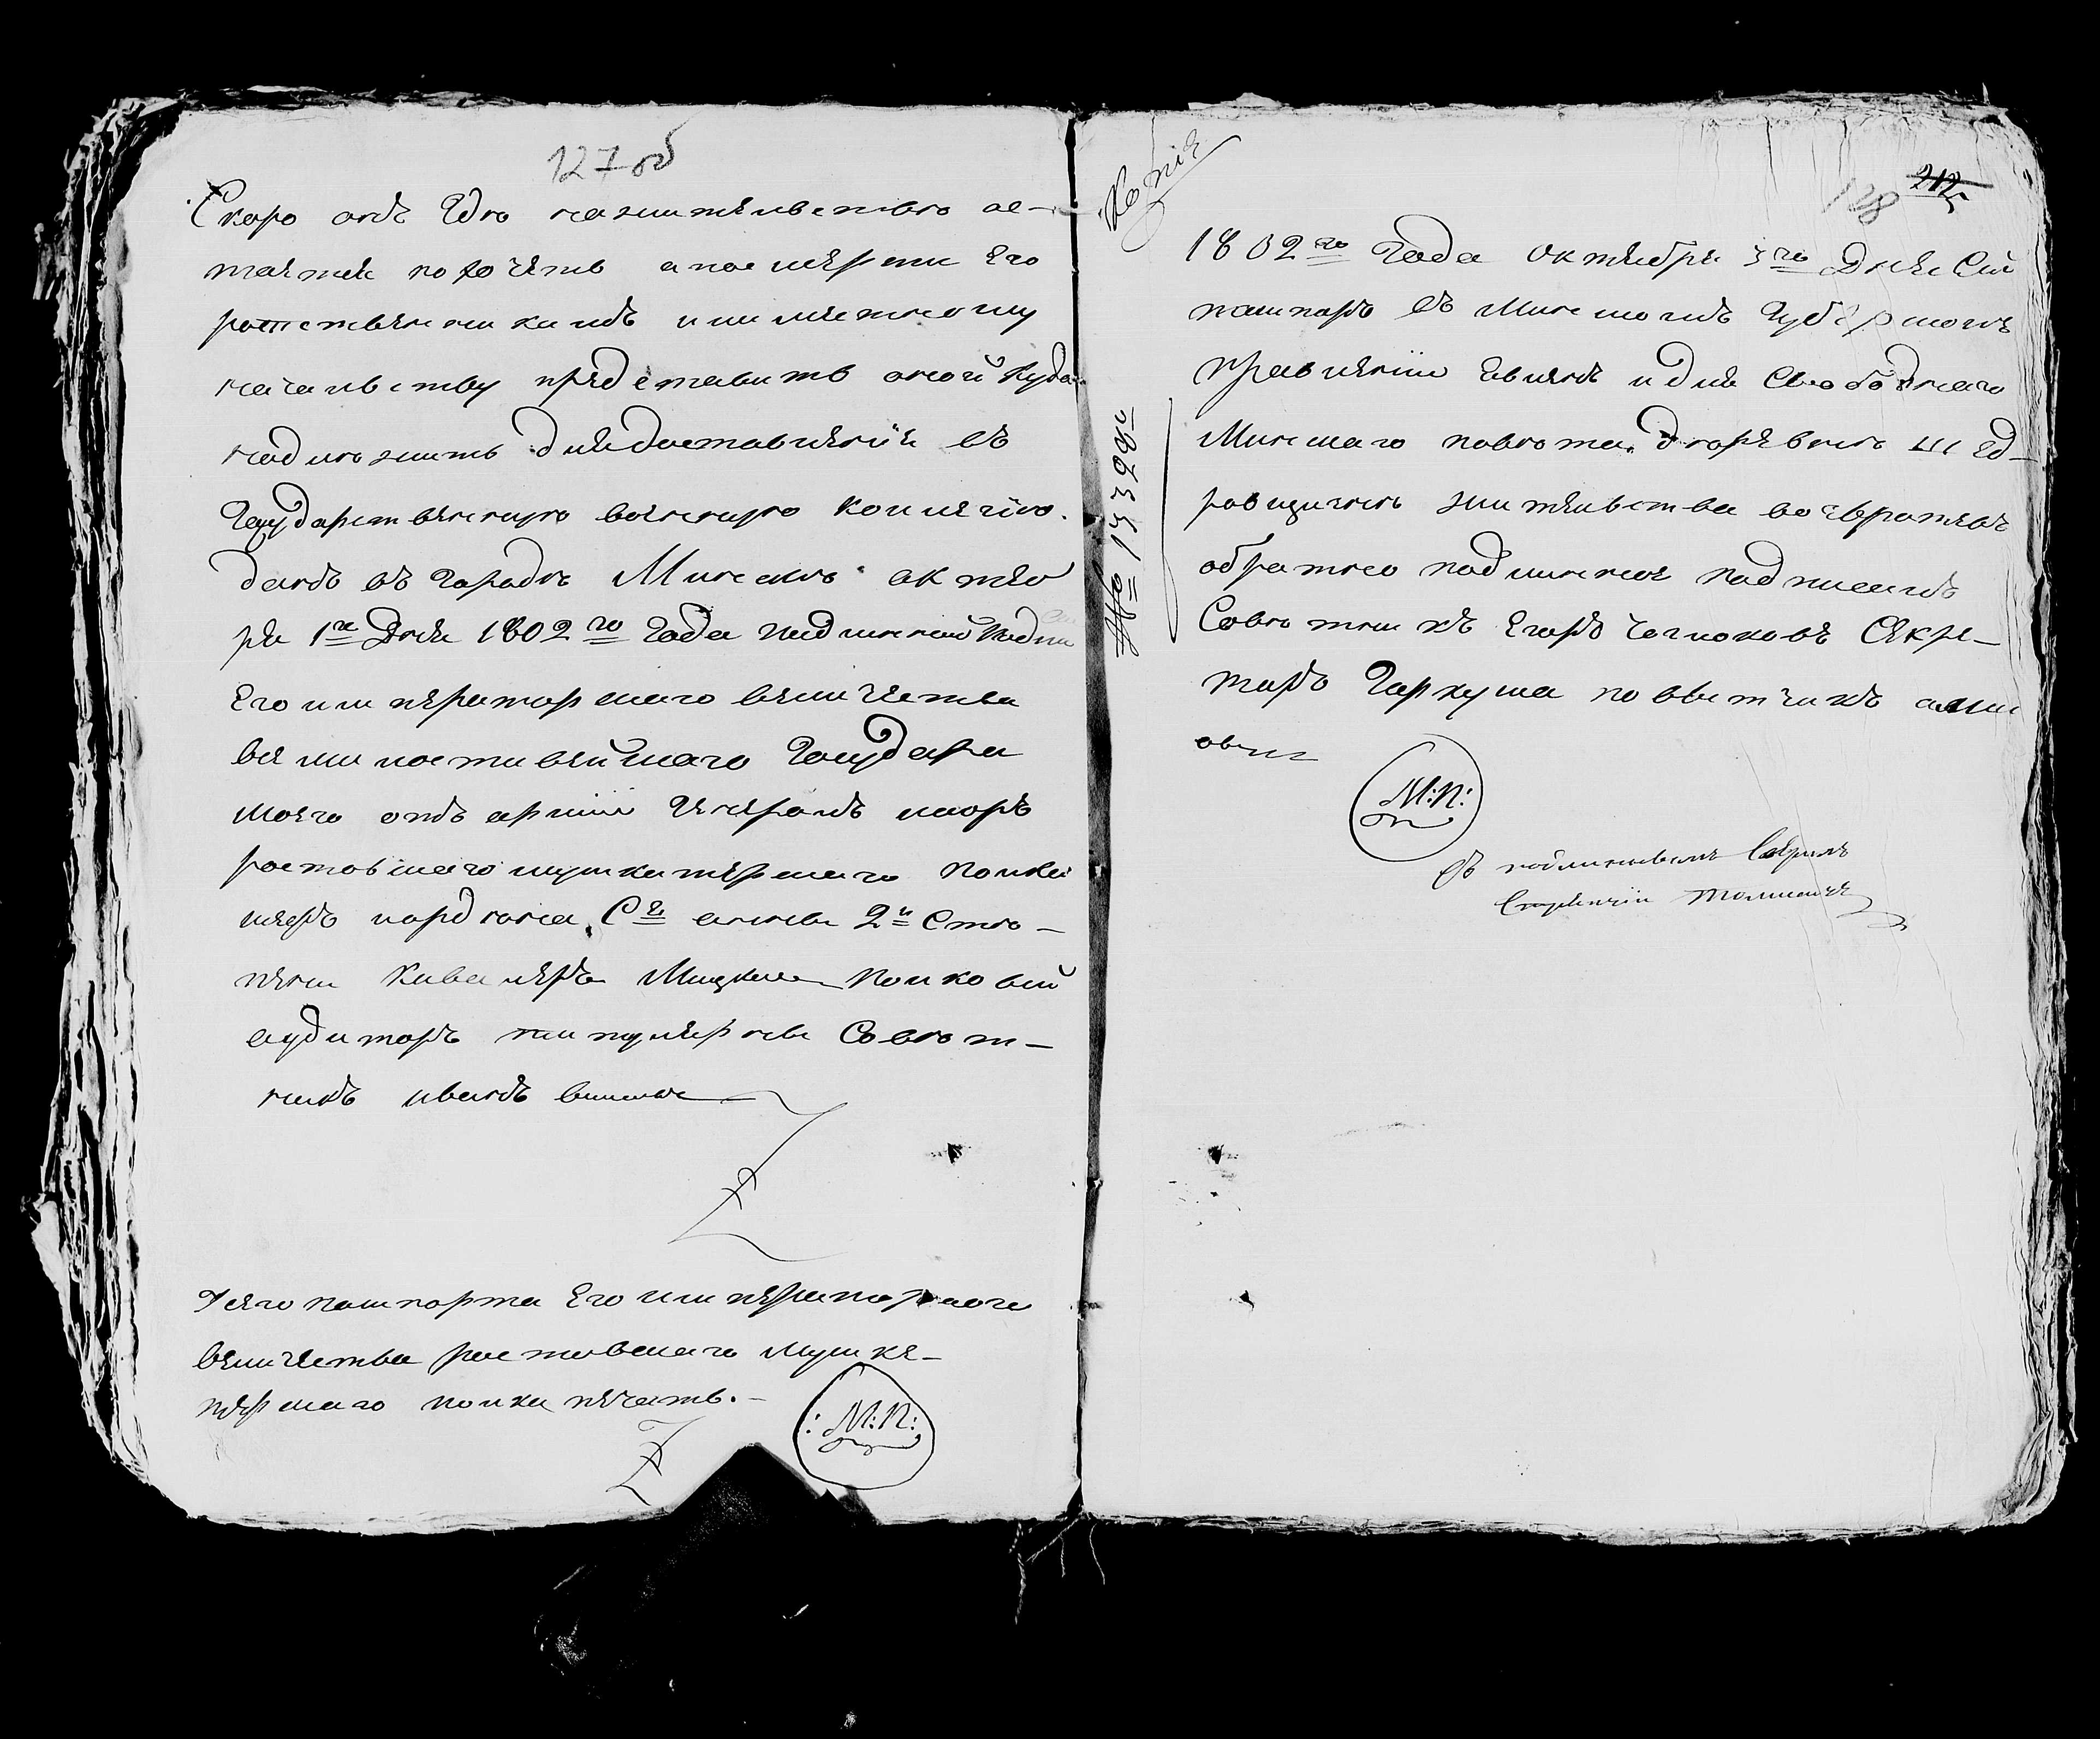 127 об
Скоро онъ Гдѣ на жительство ос-
танется похочетъ а по смерти Его
родственникамъ или местному
начальству представить оной куда
надлежитъ для доставления въ
Государственную военную коллегию.
данъ въ городѣ Минскѣ октяб
ря 1го Дня 1802го Года подлинной подпи
Его императорскаго величества
всемилостивейшаго Государя
моего отъ армии Генералъ маоръ
ростовскаго мушкатерскаго полка
шефъ С: анны 2й Сте-
пени Кавалеръ полковой
аудиторъ титулярны Совет-
никъ иванъ
У сего пашпорта Его императорскаго
величества ростовскаго мушке-
терскаго полка печать.-
:М:П:
Копия
№ 15328й
128
212
1802го Года октября 3го Дня Сей
пашпортъ въ Минскомъ Губернскомъ
правлении явленъ и для Свободнаго
Минскаго повета. в
жительства возвращенъ
обратно подлинное подписалъ
Советникъ Егоръ Секре-
тарь Гаркуша повытчикъ

М:П:
Съ подлиннымъ верилъ